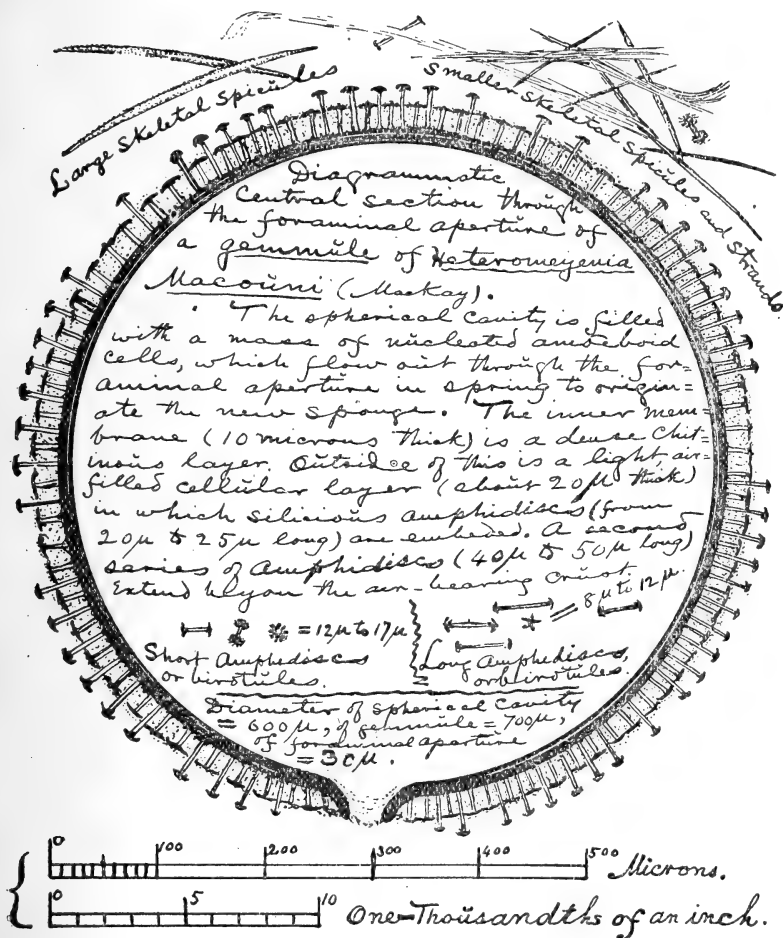 Large Skeletal Spicules
Smaller Skeletal Spicules and Strands
Diagrammatic
Central section through
the foraminal aperture of
a gemmule of Heteromeyenia
Macouni (MacKay).
The spherical cavity is filled
with a mass of nucleated amoeboid
cells, which flow out through the for=
aminal aperture in spring to origin=
ate the new sponge. The inner mem=
brane (10 microns thick) is a dense chit=
inous layer. Outside of this is a light, air=
filled cellular layer (about 20µ thick)
in which silicious amphidiscs (from
20µ to 25µ long) are embeded. A second
series of Amphidiscs (40µ to 50µ long)
Extend beyon the air-bearing crust.
= 8µ to 12µ.
= 12µ to 17µ
Short Amphediscs
or birotules.
Long Amphediscs,
or birotules.
Diameter of spherical cavity
= 600µ, of gemmule = 700µ,
of foraminal aperture
= 30µ.
0 100 200 300 400 500 Microns.
0 5 10 One=Thousandths of an inch.